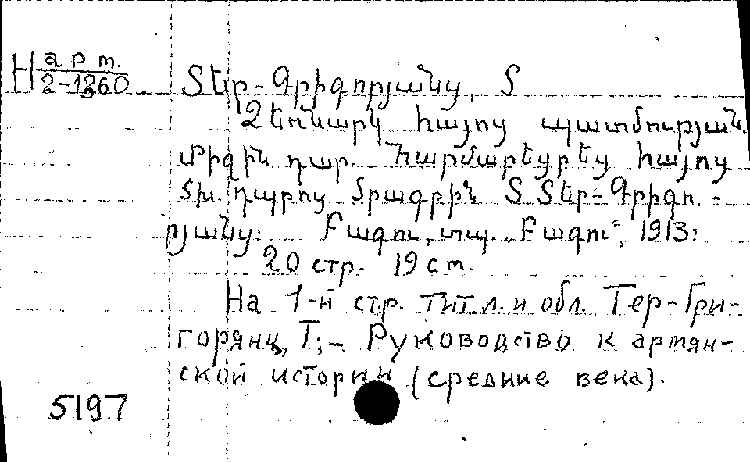 Н арт. 2-1360 Տեր-Գրիգորյանց, Տ
Ձեռնարկ հայոց պատմության.
միջին դար. Հարմարեցրեց հայոց
ծխ. դպրոց ծրագրին Տ Տեր-Գրիգո-
րյանց: Բագու, տպ. „Բագու“, 1913:
20 стр. 19 см.
На 1-й стр. титл. и обл. Тер-Гри-
горянц, Т;- Руководство к армян-
ской истории (средние века).
5197